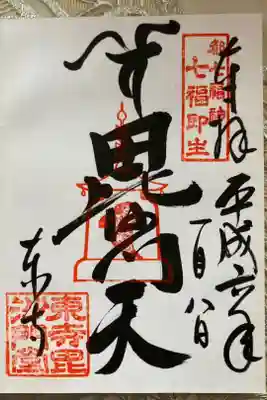 奉拝
平成六年
一月八日
都七福神
七福即生
毘沙門天
東寺
東寺毘
沙門堂